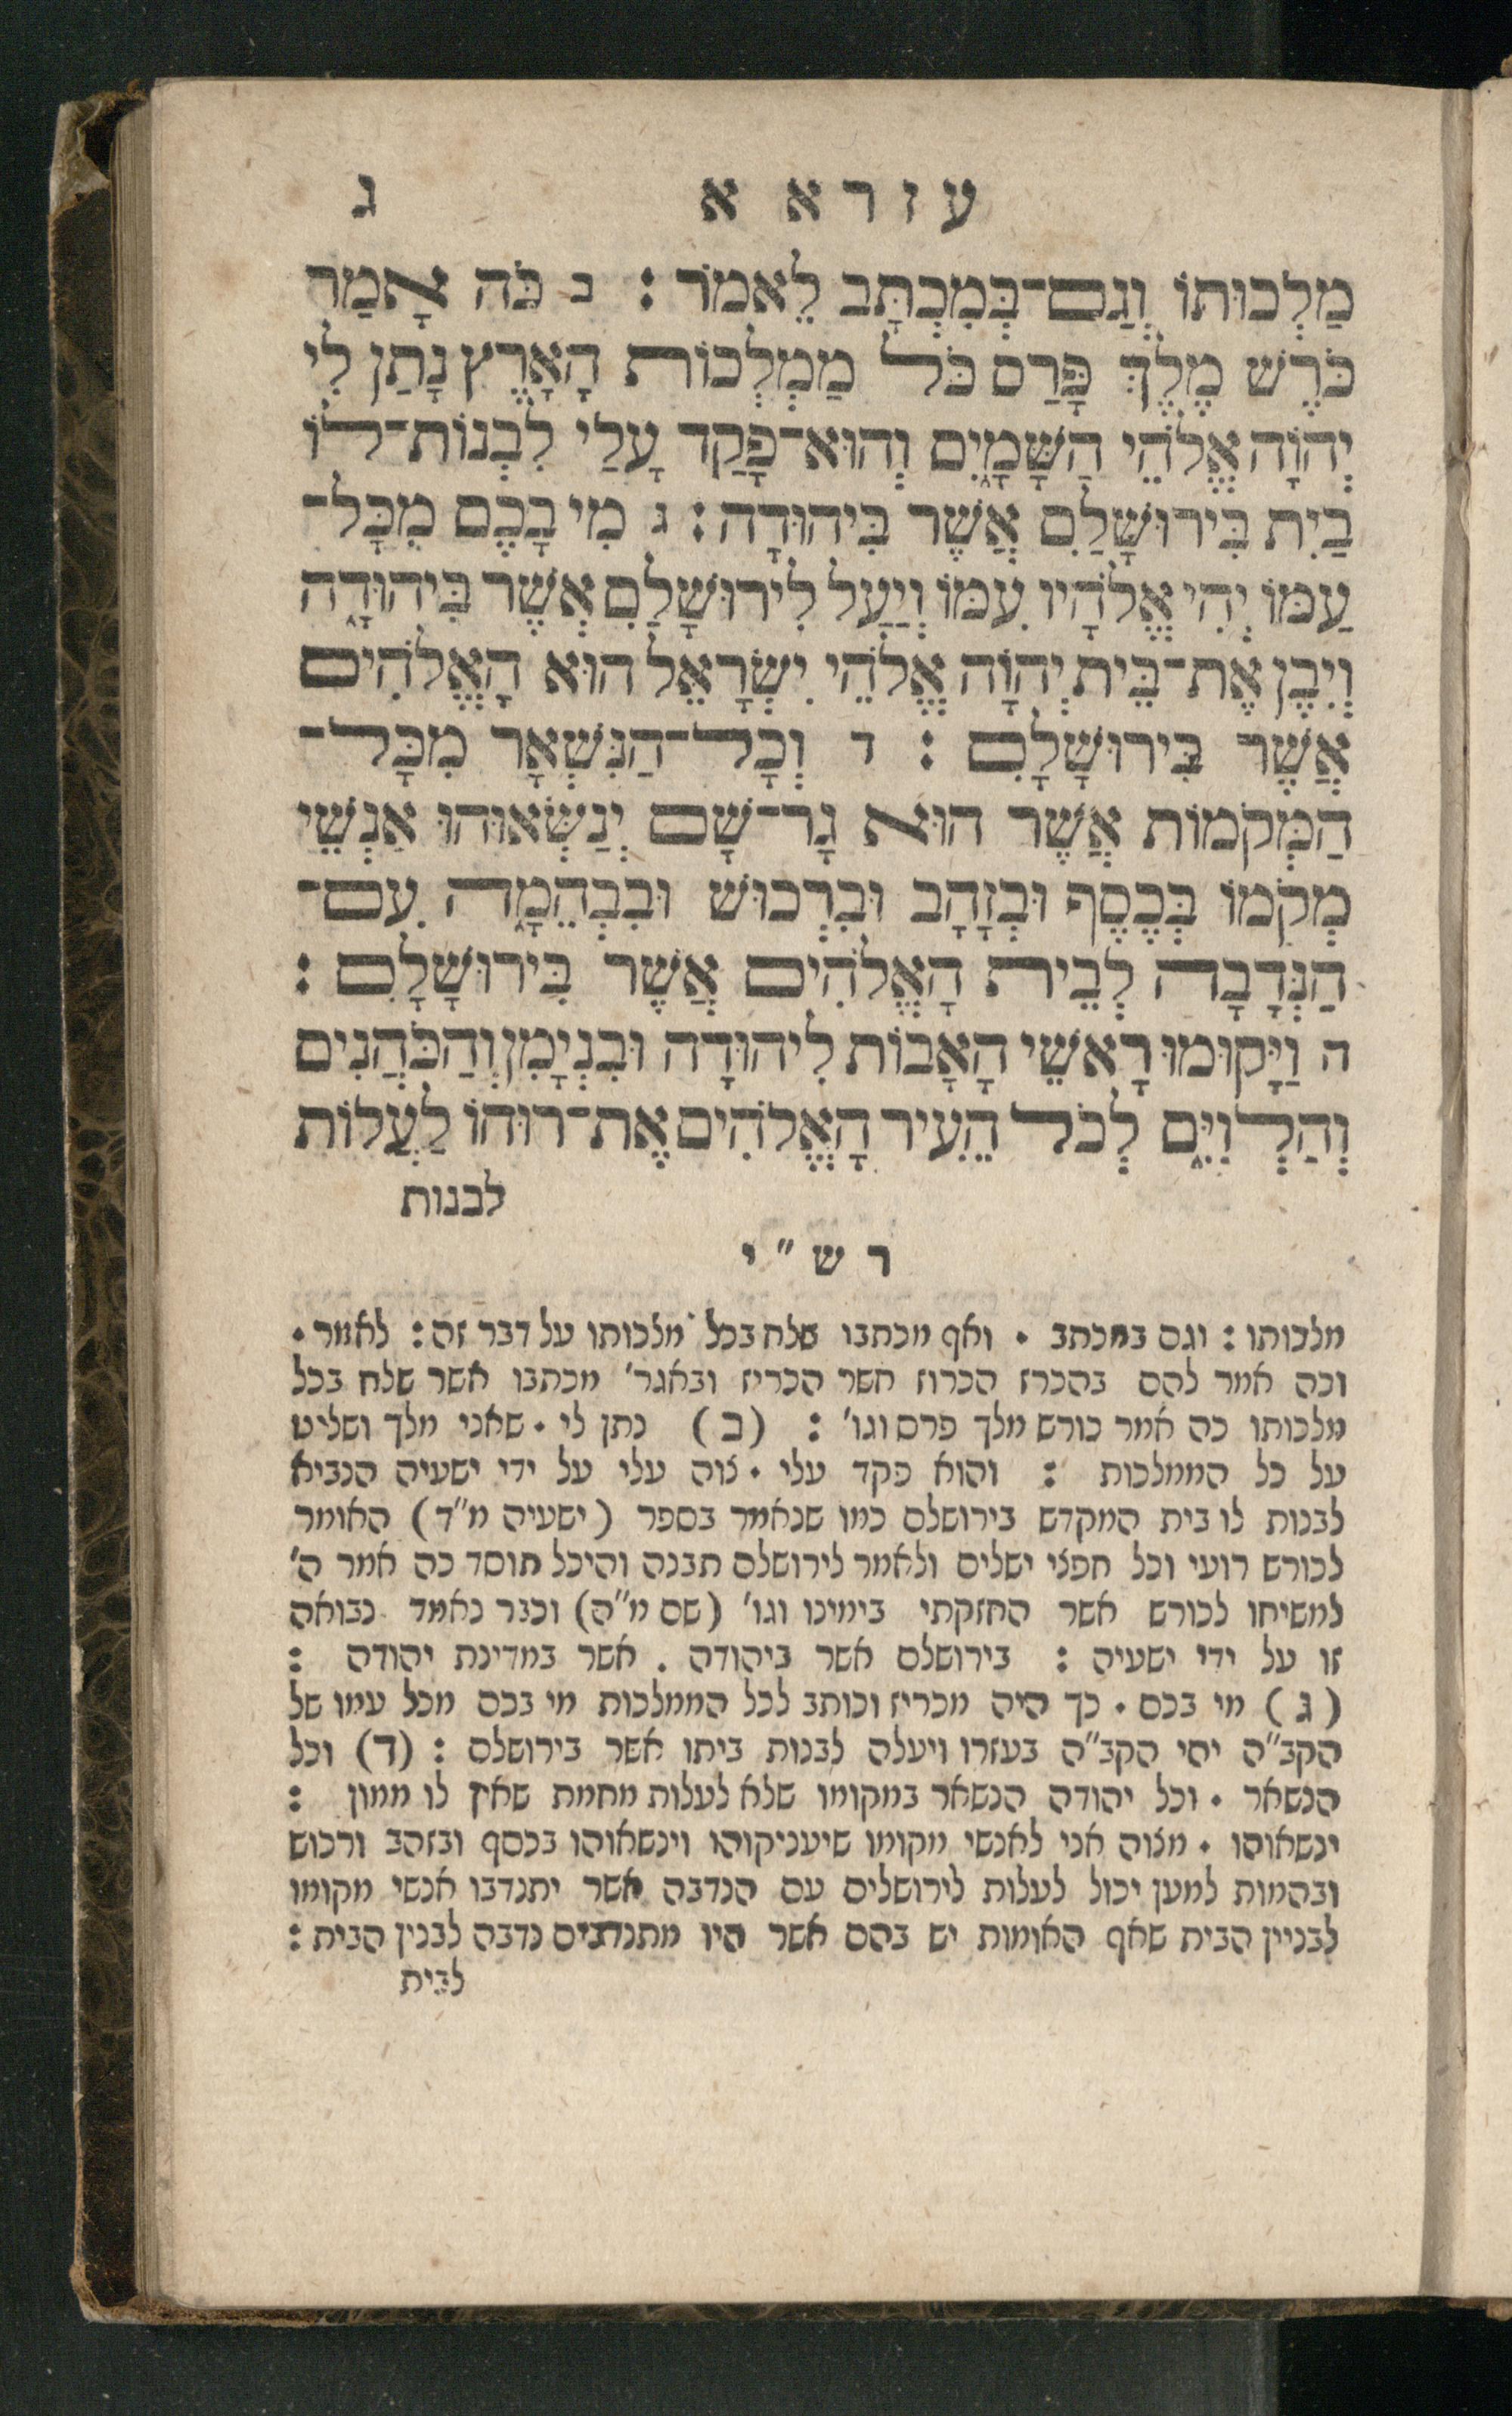 עזרא א ג
מַלְכוּתוֹ וְגַם־בְּמִכְתָּב לֵאמֹר : ב כֹּה אָמַר
כֹּרֶשׁ מֶלֶךְ פָּרַס כֹּל מַמְלְכוֹת הָאָרֶץ נָתַן לִי
יְהוָֹה אֱלֹהֵי הַשָּׁמָיִם וְהוּא־פָקַד עָלַי לִבְנוֹת־לוֹ
בַיִת בִּירוּשָׁלַםִ אֲשֶׁר בִּיהוּדָה : ג מִי בָכֶם מִכָּל־
עַמּוֹ יְהִי אֱלֹהָיו עִמּוֹ וְיַעַל לִירוּשָׁלַםִ אֲשֶׁר בִּיהוּדָה
וְיִבֶן אֶת־בֵּית יְהוָֹה אֱלֹהֵי יִשְׂרָאֵל הוּא הָאֱלֹהִים
אֲשֶׁר בִּירוּשָׁלָםִ : ד וְכָל־הַנִּשְׁאָר מִכָּל־
הַמְּקֹמוֹת אֲשֶׁר הוּא גָר־שָׁם יְנַשְּׂאוּהוּ אַנְשֵׁי
מְקֹמוֹ בְּכֶסֶף וּבְזָהָב וּבִרְכוּשׁ וּבִבְהֵמָה עִם־
הַנְּדָבָה לְבֵית הָאֱלֹהִים אֲשֶׁר בִּירוּשָׁלָםִ :
ה וַיָּקוּמוּ רָאשֵׁי הָאָבוֹת לִיהוּדָה וּבִנְיָמִן וְהַכֹּהֲנִים
וְהַלְוִיִּם לְכֹל הֵעִיר הָאֱלֹהִים אֶת־רוּחוֹ לַעֲלוֹת
לבנות
רש״י
מלכותו : וגם במכתב . ואף מכתבו שלח בכל מלכותו על דבר זה : לאמר .
וכה אמר להם בהכרז הכרוז אשר הכריז ובאגר׳ מכתבו אשר שלח בכל
מלכותו כה אמר כורש מלך פרס וגו׳ : (ב) נתן לי . שאני מלך ושליט
על כל הממלכות : והוא פקד עלי . צוה עלי על ידי ישעיה הנביא
לבנות לו בית המקדש בירושלם כמו שנאמר בספר (ישעיה מ״ד) האומר
לכורש רועי וכל חפצי ישלים ולאמר לירושלם תבנה והיכל תוסד כה אמר ה׳
למשיחו לכורש אשר החזקתי בימינו וגו׳ (שם מ״ה) וכבר נאמר נבואה
זו על ידי ישעיה : בירושלם אשר ביהודה . אשר במדינת יהודה :
(ג) מי בכם . כך היה מכריז וכותב לכל הממלכות מי בכם מכל עמו של
הקב״ה יהי הקב״ה בעזרו ויעלה לבנות ביתו אשר בירושלם : (ד) וכל
הנשאר . וכל יהודה הנשאר במקומו שלא לעלות מחמת שאין לו ממון :
ינשאוהו . מצוה אני לאנשי מקומו שיעניקוהו וינשאוהו בכסף ובזהב ורכוש
ובהמות למען יכול לעלות לירושלים עם הנדבה אשר יתנדבו אנשי מקומו
לבניין הבית שאף האומות יש בהם אשר היו מתנדבים נדבה לבנין הבית :
לבית